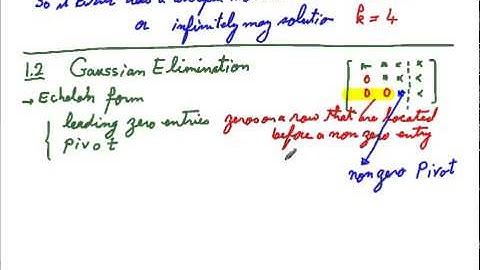 or infinitely may solution k = 4
1.2 Gaussian Elimination
→ Echelon form
leading zero entries zeros on a row that are located
before a non zero entry
Pivot
non zero Pivot
0
0 0